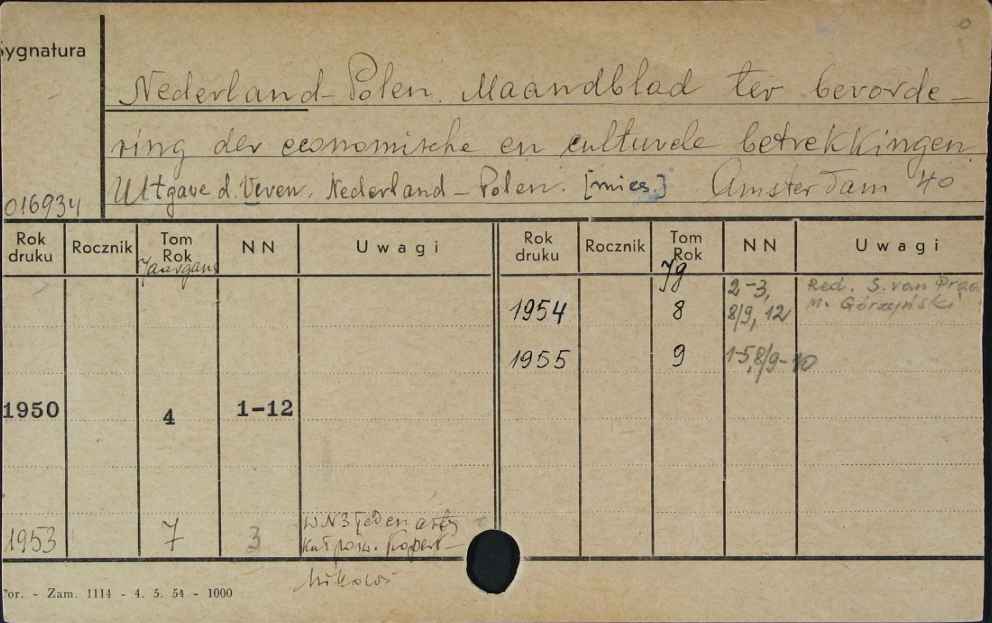 Sygnatura
Nederland-Polen. Maandblad ter bevorde-
ring der economische en culturele betrekkingen.
Uitgave d. Veren. Nederland-Polen. [mies.] Amsterdam 40
016934
Rok druku Rocznik Tom Rok NN Uwagi Rok druku Rocznik Tom Rok NN Uwagi
Jaargang Jg
1954 8 2-3, 8/9, 12 Red. S. van Praa M. Górzyński
1955 9 1-5,8/9-10
1950 4 1-12
1953 7 3 w N3 jeden
Mikołaj
Por. - Zam. 1114 - 4. 5. 54 - 1000